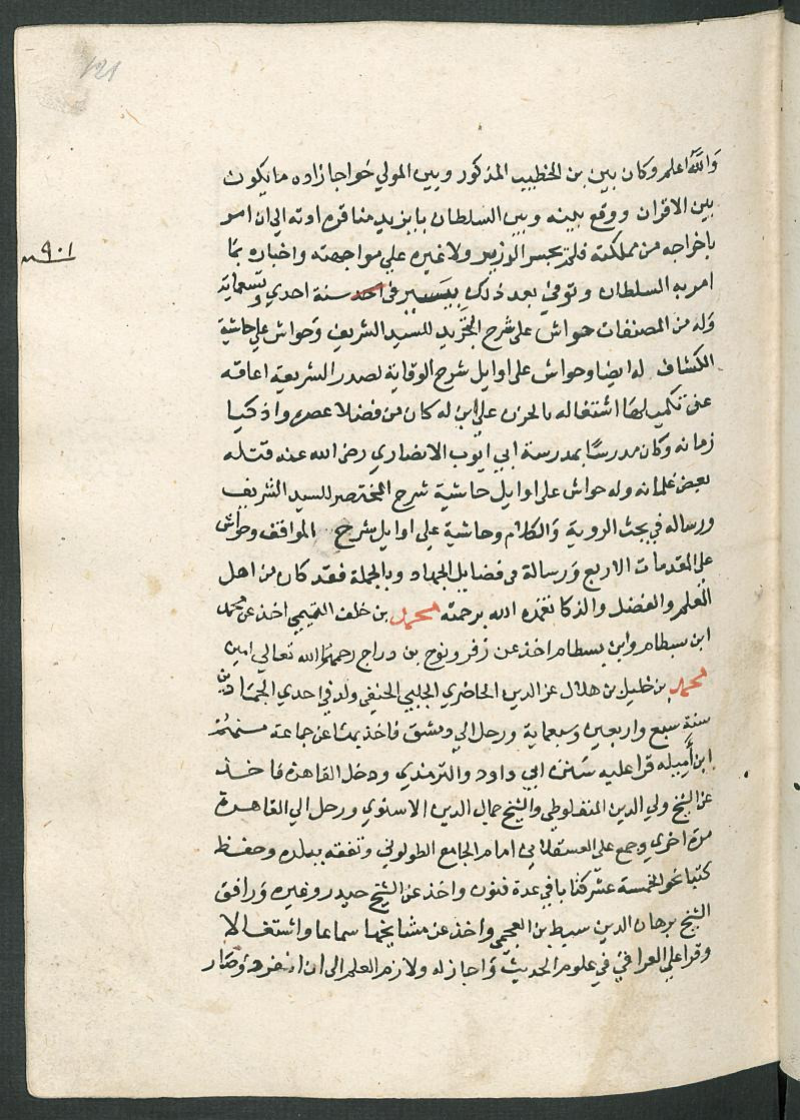 121
٩٠١
والله اعلم وكان بين بن الخطيب المذكور وبين المولي خواجا زاده ما يكون
بين الاقران ووقع بينه وبين السلطان بايزيد منافرة ادته الي ان امر
باخراجه من مملكته فلم يجسر الوزير ولا غيره علي مواجهته واخباره بما
امر به السلطان وتوفي بعد ذلك بيسير في احد سنة احدي وتسعماية
وله من المصنفات حواش علي شرح التجريد للسيد الشريف وحواش علي حاشية
الكشاف له ايضا وحواش علي اوايل شرح الوقاية لصدر الشريعة اعاقه
عن تكميلها اشتغاله بالحزن علي ابن له كان من فضلا عصره واذكيا
زمانه وكان مدرسا بمدرسة ابي ايوب الانصاري رضي الله عنه قتله
بعض غلمانه وله حواش علي اوايل حاشية شرح المختصر للسيد الشريف
ورساله في بحث الروية والكلام وحاشية علي اوايل شرح المواقف وحواش
علي المقدمات الاربع ورسالة في فضايل الجهاد وبالجملة فقد كان من اهل
العلم والفضل والذكا تغمده الله برحمته محمد بن خلف التميمي اخذ عن محمد
ابن سبطام وابن بسطام اخذ عن زفر ونوح بن دراج رحمهما الله تعالي امين
محمد بن خليل بن هلال عز الدين الحاضري الحلبي الحنفي ولد في احدي الجمادين
سنة سبع واربعين وسبعماية ورحل الي دمشق فاخذ بها عن جماعة منهم
ابن اميله قرا عليه سنن ابي داود والترمذي ودخل القاهرة فاخذ
عن الشيخ ولي الدين المنفلوطي والشيخ جمال الدين الاسنوي ورحل الي القاهرة
مرة اخري وجمع علي العسقلاني امام الجامع الطولوني وتفقه ببلده وحفظ
كتبا نحو الخمسة عشر كتابا في عدة فنون واخذ عن الشيخ حيدر وغيره ورافق
الشيخ برهان الدين سبط بن العجمي واخذ عن مشايخها سماعا واشتغالا
وقرا علي العراقي في علوم الحديث واجاز له ولازم العلم الي ان انفرد وصار